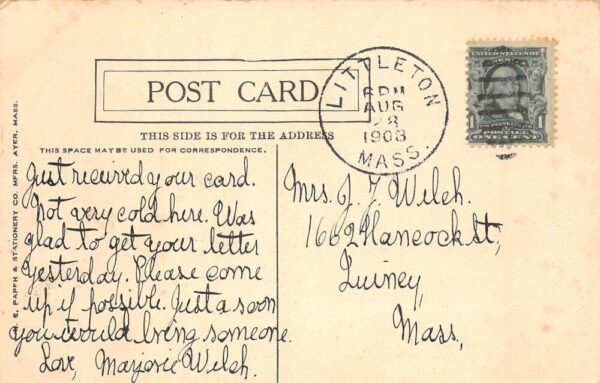 POST CARD
THIS SIDE IS FOR THE ADDRESS
THIS SPACE MAY BE USED FOR CORRESPONDENCE.
PAPER & STATIONERY CO. MFRS. AYER, MASS.
LITTLETON
6 PM
AUG
28
1908
MASS.
UNITED STATES OF
AMERICA
FRANKLIN
1 POSTAGE 1
ONE CENT
Just received your card.
Not very cold here. Was
glad to get your letter
yesterday. Please come
up if possible. Just a soon
you would bring someone.
Love, Marjorie Welch.
Mrs. J. F. Welch.
1662 Hancock st,
Quincy,
Mass,